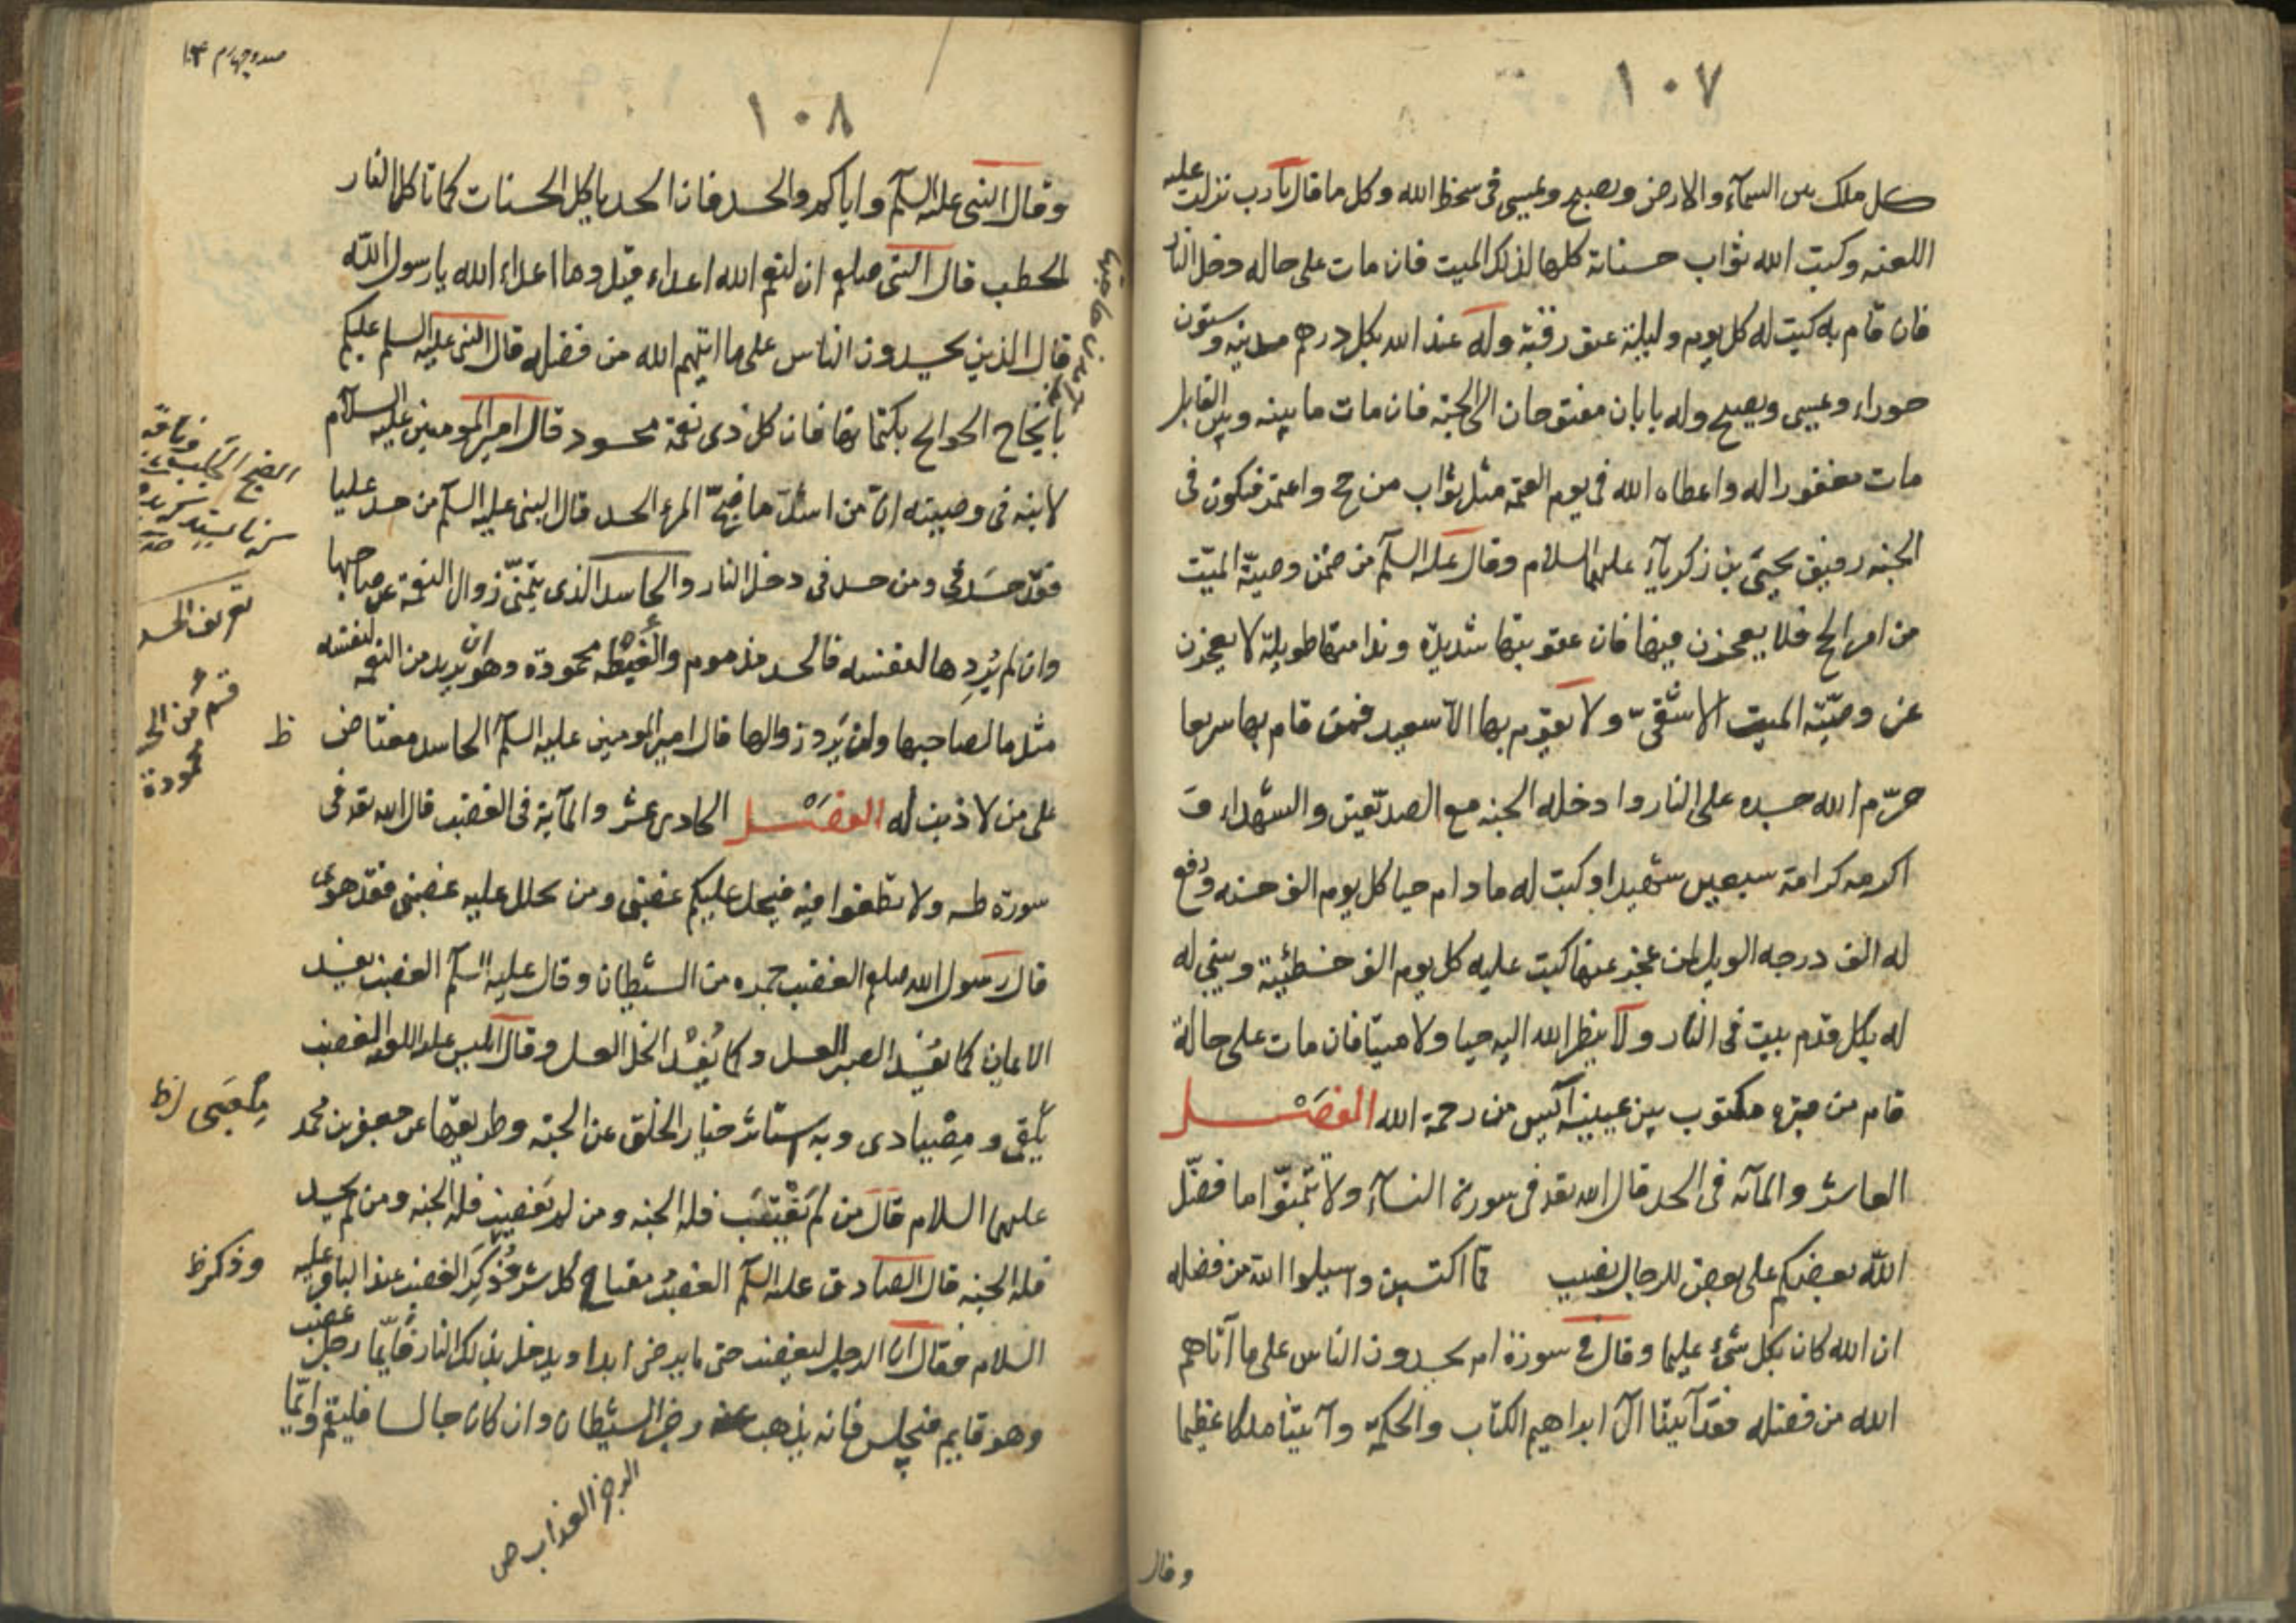 ١٠٧
كل ملك بين السمآء والارض ويصبح ويمسى فى سخط الله وكل ما قال يا رب نزلت عليه
اللعنه وكتبت الله ثواب حسناته كلها لذلك الميت فان مات على حاله دخل النار
فان قام به كتبت له كل يوم وليلة عتق رقبة وله عند الله بكل درهم مدينه وستون
حوراء ويمسى ويصبح وله بابان مفتوحان الى الجنه فان مات ما بينه وبين القابل
مات مغفورا له واعطاه الله فى يوم القيمة مثل ثواب من حج واعتمر فيكون فى
الجنه رفيق يحيى بن زكريآء عليهما السلام وقال عليه السلم من ضمن وصيّة الميّت
من امر الحج فلا يعجزن فيها فان عقوبتها شديدة وندامتها طويلة لا يعجزن
عن وصيّة الميت الا شقىّ ولا يقوم بها الا سعيد فمن قام بها سريعا
حرّم الله جسده على النار وادخله الجنه مع الصدّيقين والشهداء و
اكرمه كرامة سبعين شهيدا وكتبت له ما دام حيا كل يوم الف حسنه ورفع
له الف درجه الويل لمن عجز عنها كتبت عليه كل يوم الف خطيئة ويبنى له
له بكل قدم بيت فى النار ولا ينظر الله اليه حيا ولا ميتا فان مات على حالة
قام من قبره مكتوب بين عينيه آيس من رحمة الله الفَصْل
العاشر والمآئه فى الحسد قال الله تعد فى سورة النسآء ولا تتمنّوا ما فضّل
الله بعضكم على بعض للرجال نصيب مما اكتسبن واسئلوا الله من فضله
ان الله كان بكل شئ عليما وقال فى سورة ام يحسدون الناس على ما آتاهم
الله من فضله فقد آتينا آل ابراهيم الكتاب والحكمة وآتيناهم ملكا عظيما
وقال
صد وچهارم ١٠٤
١٠٨
وقال النبى عليه السلم واياكم والحسد فان الحسد ياكل الحسنات كما تاكل النار
الحطب قال النبى صلعم ان لنعم الله اعداء قيل وما اعداء الله يا رسول الله
قال الذين يحسدون الناس على ما اتيهم الله من فضله قال النبى عليه السلم عليكم
بانجاح الحوائج بكتمانها فان كل ذى نعمة محسود قال امير المومنين عليه السلام
لابنه فى وصيته انّ من اسئلَ ما ضجّ المرء الحسد قال النبى عليه السلم من حسد عليا
فقد حَسَدنى ومن حسدنى دخل النار والحاسد الذى يتمنّى زوال النعمة عن صاحبها
وان لم يُرِدها لنفسه فالحسد مذموم والغِبْطه محمودة وهو ان يريد من النعم لنفسه
مثل ما لصاحبها ولم يَرِد زوالها قال امير المومنين عليه السلم الحاسد مغتاض
على من لا ذنب له الفَصْل الحادى عشر والمآية فى الغضب قال الله تعد فى
سورة طه ولا تطغوا فيه فيحل عليكم غضبى ومن يحلل عليه غضبى فقد هوى
قال رسول الله صلعم الغضب جمره من الشيطان وقال عليه السلم الغضب يفسد
الايمان كما يُفسِد الصبر العسل وكما يُفْسِد الخل العسل وقال ابليس عليه اللعنه الغضب
وهقى ومصيادى وبه استاثر خيار الخلق عن الجنه وطريقها عن جعفر بن محمد
عليهما السلام قال من لم يَغْتَب فله الجنه ومن لم يَغضب فله الجنه ومن لم يحسد
فله الجنه قال الصادق عليه السلم الغضب مفتاح كل شر وذُكِرَ الغضب عند الباقر عليه
السلام فقال ان الرجل ليغضب حتى ما يرضى ابدا ويدخل بذلك النار فايّما رجل غضب
وهو قايم فيجلس فانه يذهب عنه رجز الشيطان وان كان جالسا فليقم وايّما
الرجز العذاب ص
تعريف الحسد
قسم من الحسد
محمودة
ظ
وذكر ظ